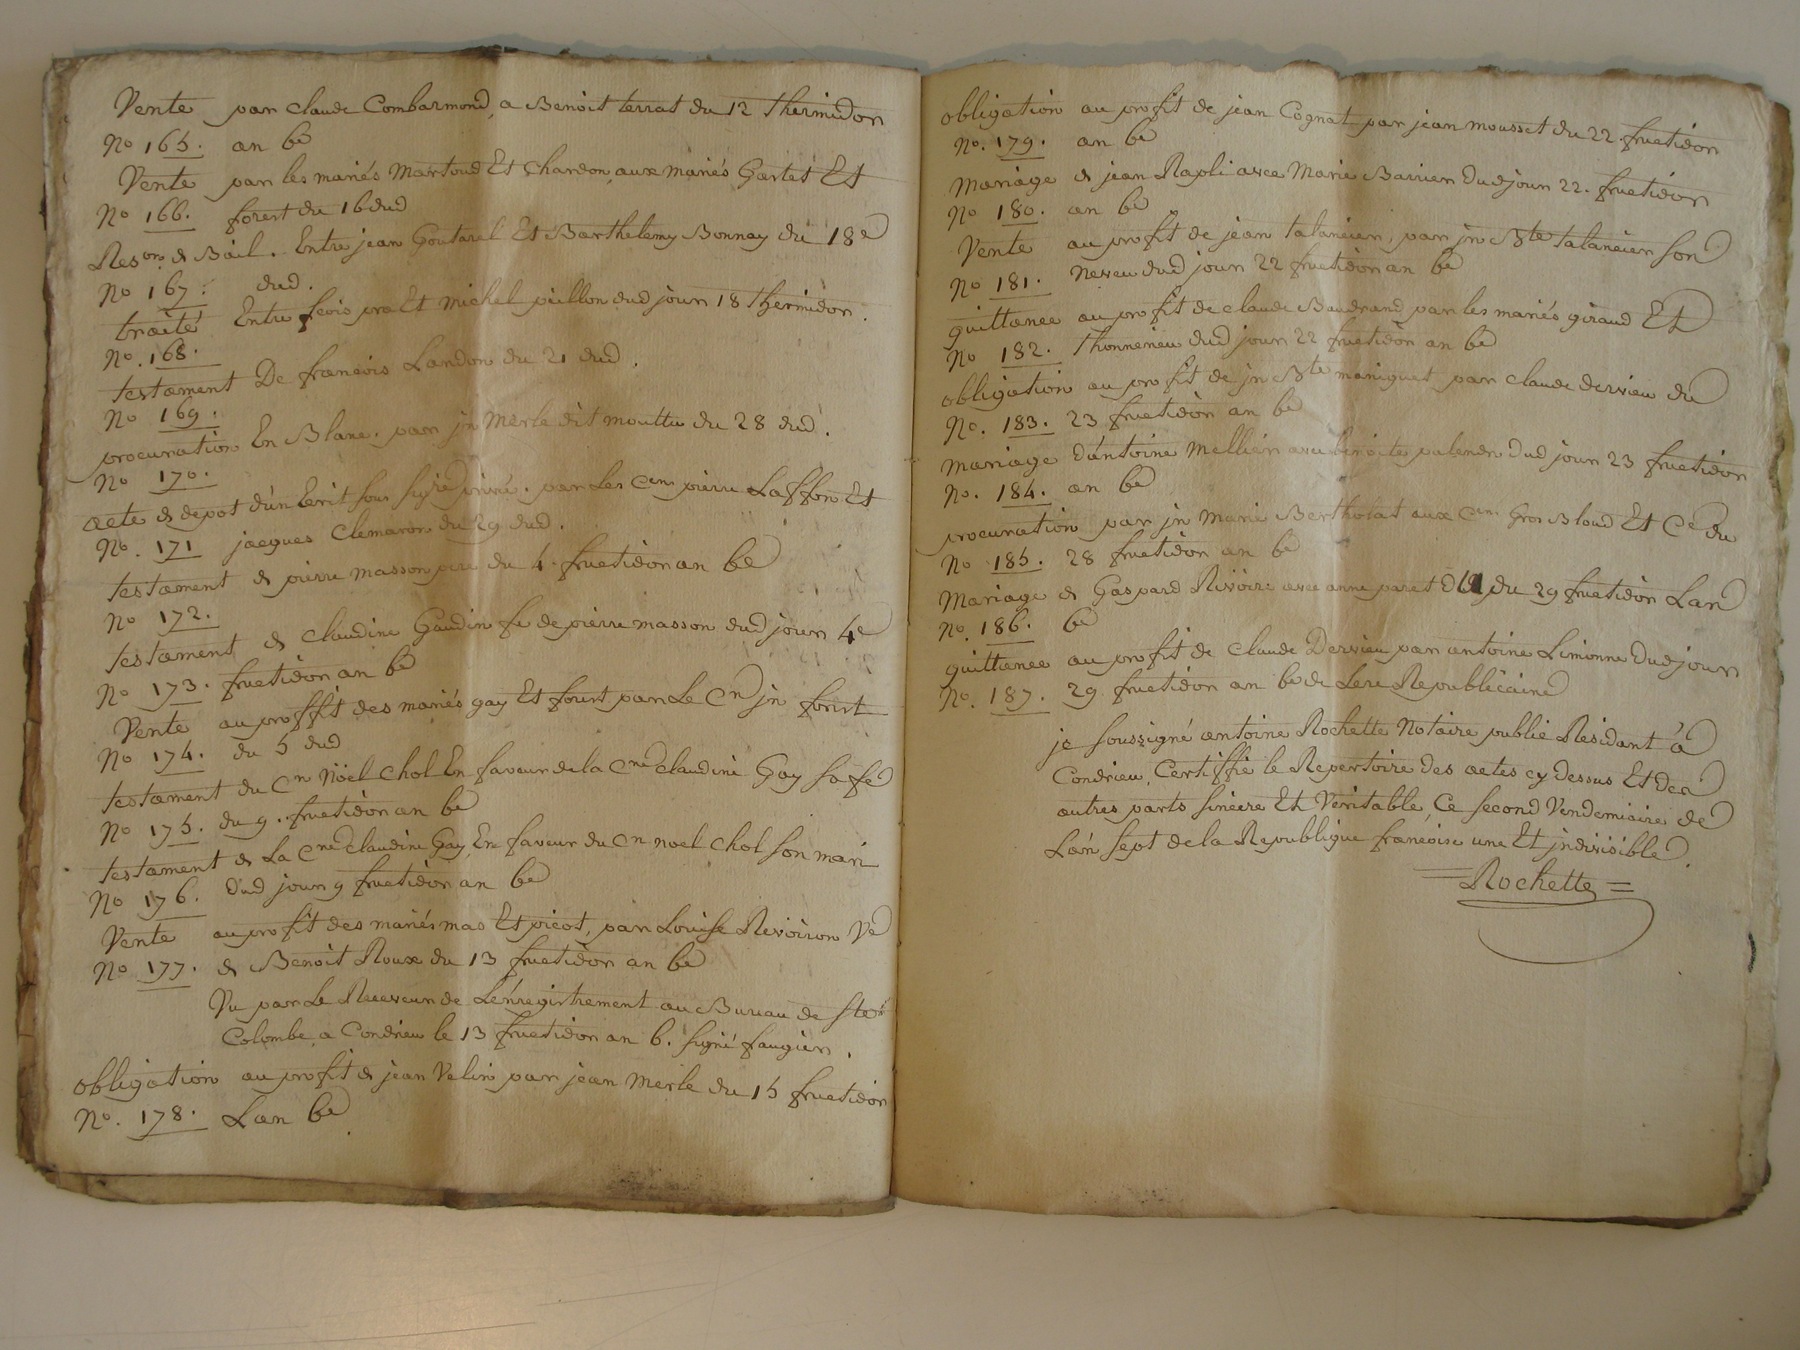 Vente par claude Combarmond, a Benoit terrat du 12 thermidor
No 165. an 6e
Vente par les mariés Martoud Et Chardon aux mariés Gartet Et
No 166. forest du 16 dud
Reson & Bail. Entre jean Goutarel Et Barthelemy Bonnay du 18e
No 167. dud.
traité Entre fcois pra Et michel pillon dud jour 18 thermidor.
No. 168.
testament De francois Landon du 21 dud.
No 169.
procuration En Blanc. par jn Merle dit mouttu du 28 dud.
No 170.
acte & depot d'un Ecrit sous signé privé. par Les Cens pierre Laffon Et
No. 171 jacques Clemaron du 29 dud.
testament & pierre masson pere du 4. fructidor an 6e
No 172.
testament & claudine Gaudin fe de pierre masson dud jour 4e
No 173. fructidor an 6e
Vente au proffit des mariés gay Et fourt par Le Cn jn forest
No 174. du 5 dud
testament du Cn Nöel Chol En faveur de la Cne Claudine Gay sa fe
No 175. du 9. fructidor an 6e
testament & La Cne Claudine Gay En faveur du Cn noel chol son mari
No 176. dud jour 9 fructidor an 6e
Vente au profit des mariés mas Et picot, par Louise Revoiron Ve
No 177. & Benoit Roux du 13 fructidor an 6e
Vu par Le Receveur de L'enregistrement au Bureau de Ste
Colombe a Condrieu le 13 fructidor an 6. signé faugier.
obligation au profit & jean Velin par jean Merle du 15 fructidor
No. 178. Lan 6e
obligation au profit de jean Cognat par jean mousset du 22. fructidor
No. 179. an 6e
Mariage & jean Rapli avec Marie Barrier dudjour 22. fructidor
No 180. an 6e
Vente au profit de jean talancieu, par jn Bte talancieu son
No 181. neveu dud jour 22 fructidor an 6e
quittance au profit de claude Baudrand par les mariés giraud Et
No 182. thonnerieu dud jour 22 fructidor an 6e
obligation au profit de jn Bte maniquet par claude dervieu du
No. 183. 23 fructidor an 6e
mariage d'antoine Mellier avec benoite palendre dud jour 23 fructidor
No. 184. an 6e
procuration par jn Marie Bertholat aux Cens Gros Bloud Et Ce du
No 185. 28 fructidor an 6e
Mariage & Gaspard Rivoire avec anne paret du 29 fructidor Lan
No. 186. 6e
quittance au profit de claude Dervieu par antoine Limonne dudjour
No. 187. 29 fructidor an 6e de L'ere Republicaine
je soussigné antoine Rochette Notaire public Residant à
Condrieu, Certiffie le Repertoire des actes cy dessus Et des
autres parts sincere Et Veritable, Ce second Vendemiaire de
L'an sept de la Republique francoise une Et jndivisible.
Rochette